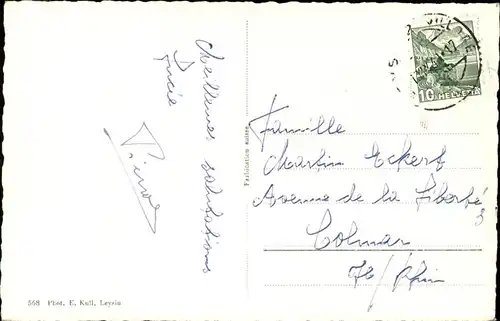 Meilleures salutations
Lucie
Famille
Martin Eckert
Avenue de la Liberté
3
Colmar
Ht/Rhin
Fabrication suisse
568 Phot. E. Kull, Leysin
10 HELVETIA